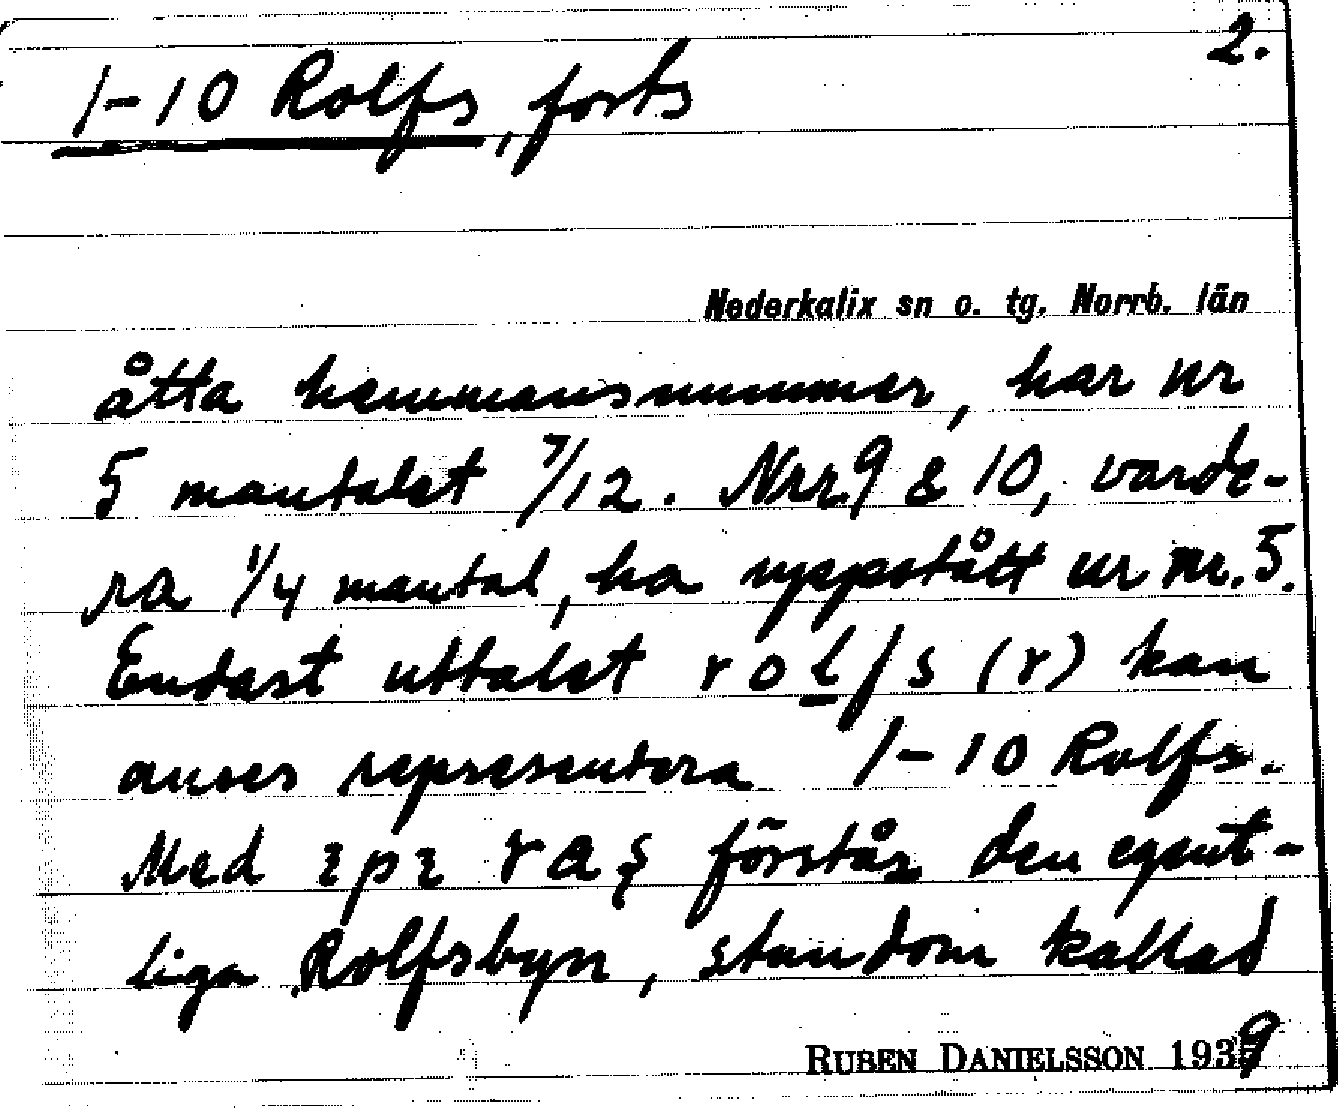 2.
1-10 Rolfs, forts
Nederkalix sn o. tg. Norrb. län
åtta hemmansnummer, har nr
5 mantalet 7/12. Nrr 9 & 10, varde-
ra 1/4 mantal, ha uppstått ur nr. 5.
Endast uttalet rolfs (r) kan
anses representera 1-10 Rolfs.
Med förstås den egent-
liga Rolfsbyn, stundom kallad
RUBEN DANIELSSON 1939